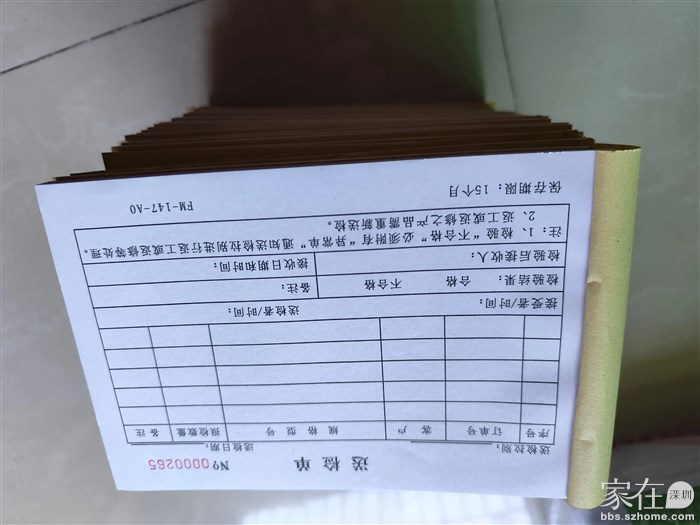 送检单
№ 0000265
送检拉别： 送检日期：
序号 订单号 客户 规格型号 报检数量 备注
接受者/时间： 送检者/时间：
检验结果： 合格 不合格 备注：
检验后接收人： 接收日期和时间：
注：1、检验“不合格”必须附有“异常单”通知送检拉别进行返工或返修等处理。
2、返工或返修之产品需重新送检。
保存期限：15个月 FM-147-A0
家在 深圳
bbs.szhome.com